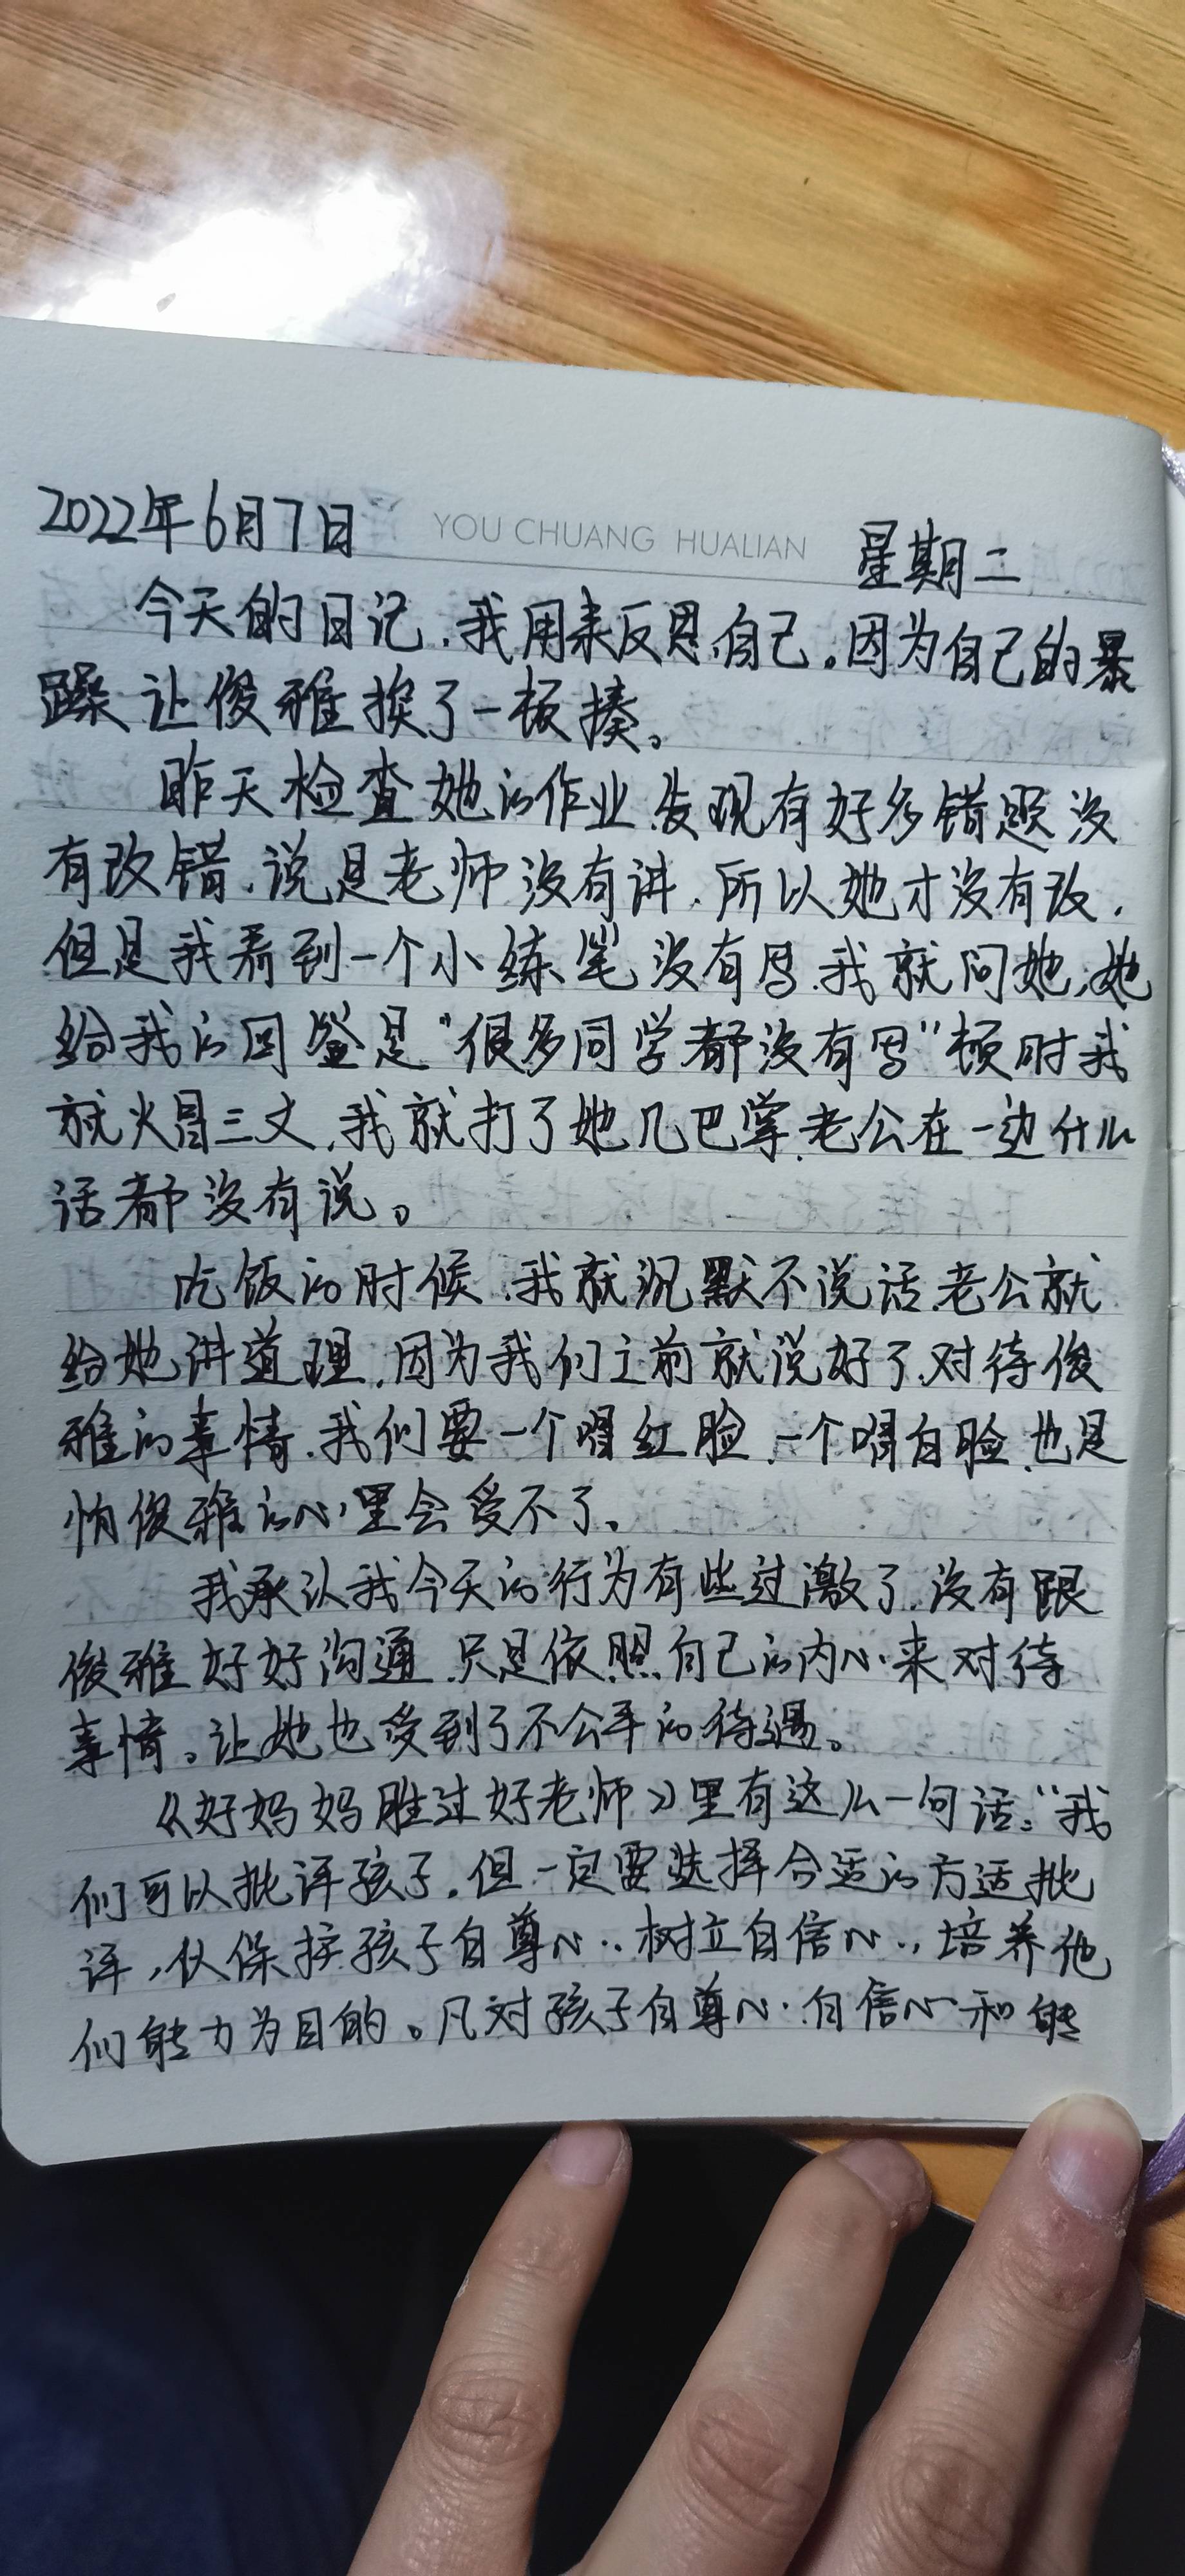 2022年6月7日 YOU CHUANG HUALIAN 星期二
今天的日记,我用来反思自己。因为自己的暴
躁让俊雅挨了一顿揍。
昨天检查她的作业,发现有好多错题没
有改错,说是老师没有讲,所以她才没有改,
但是我看到一个小练笔没有写,我就问她,她
给我的回答是“很多同学都没有写”顿时我
就火冒三丈,我就打了她几巴掌,老公在一边什么
话都没有说。
吃饭的时候,我就沉默不说话,老公就
给她讲道理,因为我们之前就说好了,对待俊
雅的事情,我们要一个唱红脸,一个唱白脸,也是
怕俊雅的心里会受不了。
我承认我今天的行为有些过激了,没有跟
俊雅好好沟通,只是依照自己的内心来对待
事情。让她也受到了不公平的待遇。
《好妈妈胜过好老师》里有这么一句话:“我
们可以批评孩子,但一定要选择合适的方适批
评,以保护孩子自尊心、树立自信心、培养他
们能力为目的。凡对孩子自尊心、自信心和能